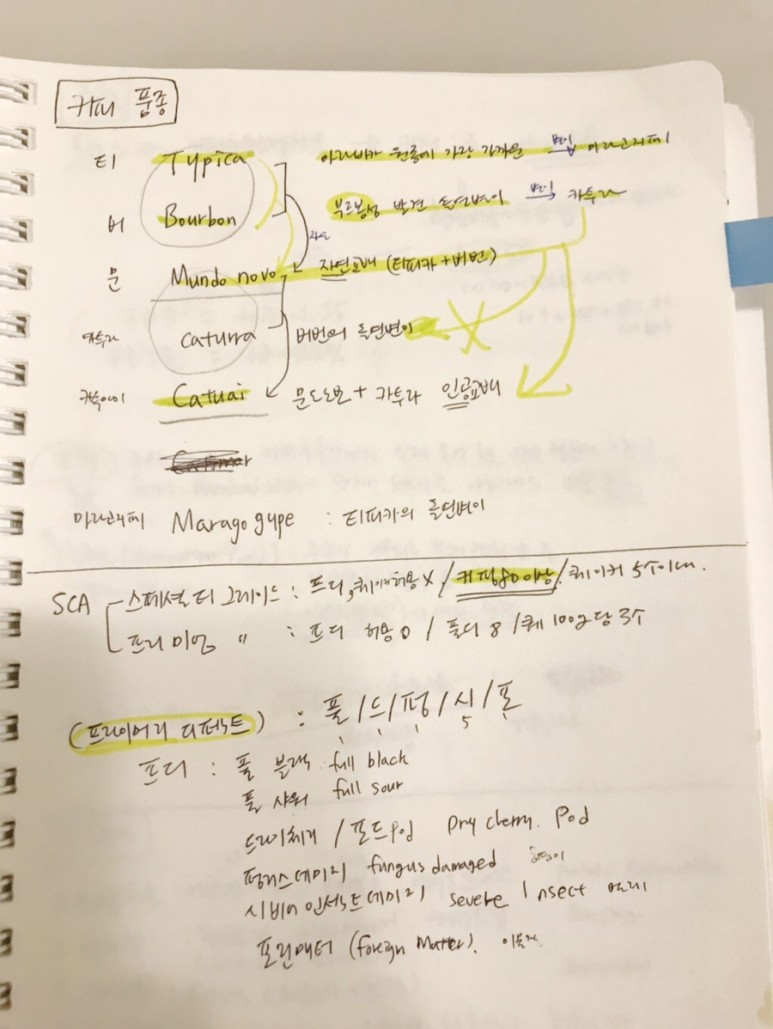 커피 품종
티 Typica 아라비카 원종에 가장 가까운 변이 마라고지페
버 Bourbon 부르봉섬 발견 돌연변이 변이 카투라
문 Mundo novo 자연교배 (티피카+버번)
카투라 caturra 버번의 돌연변이
카투아이 Catuai 문도노보 + 카투라 인공교배
마라고지페 Marago gype : 티피카의 돌연변이
SCA 스페셜티 그레이드 : 프디, 퀘이커허용 X / 커핑80이상 / 퀘이커 5개이내.
프리미엄 〃 : 프디 허용 0 / 풀디 8 / 퀘 100g당 3개
(프라이머리 디펙트) : 풀/드/펑/시/포
5
프디 : 풀 블랙 full black
풀 사워 full sour
드라이체리 / 포드 Pod Dry cherry. Pod
펑거스데미지 fungus damaged 곰팡이
시비어 인섹트데미지 severe Insect 벌레
포린매터 (foreign Matter). 이물질